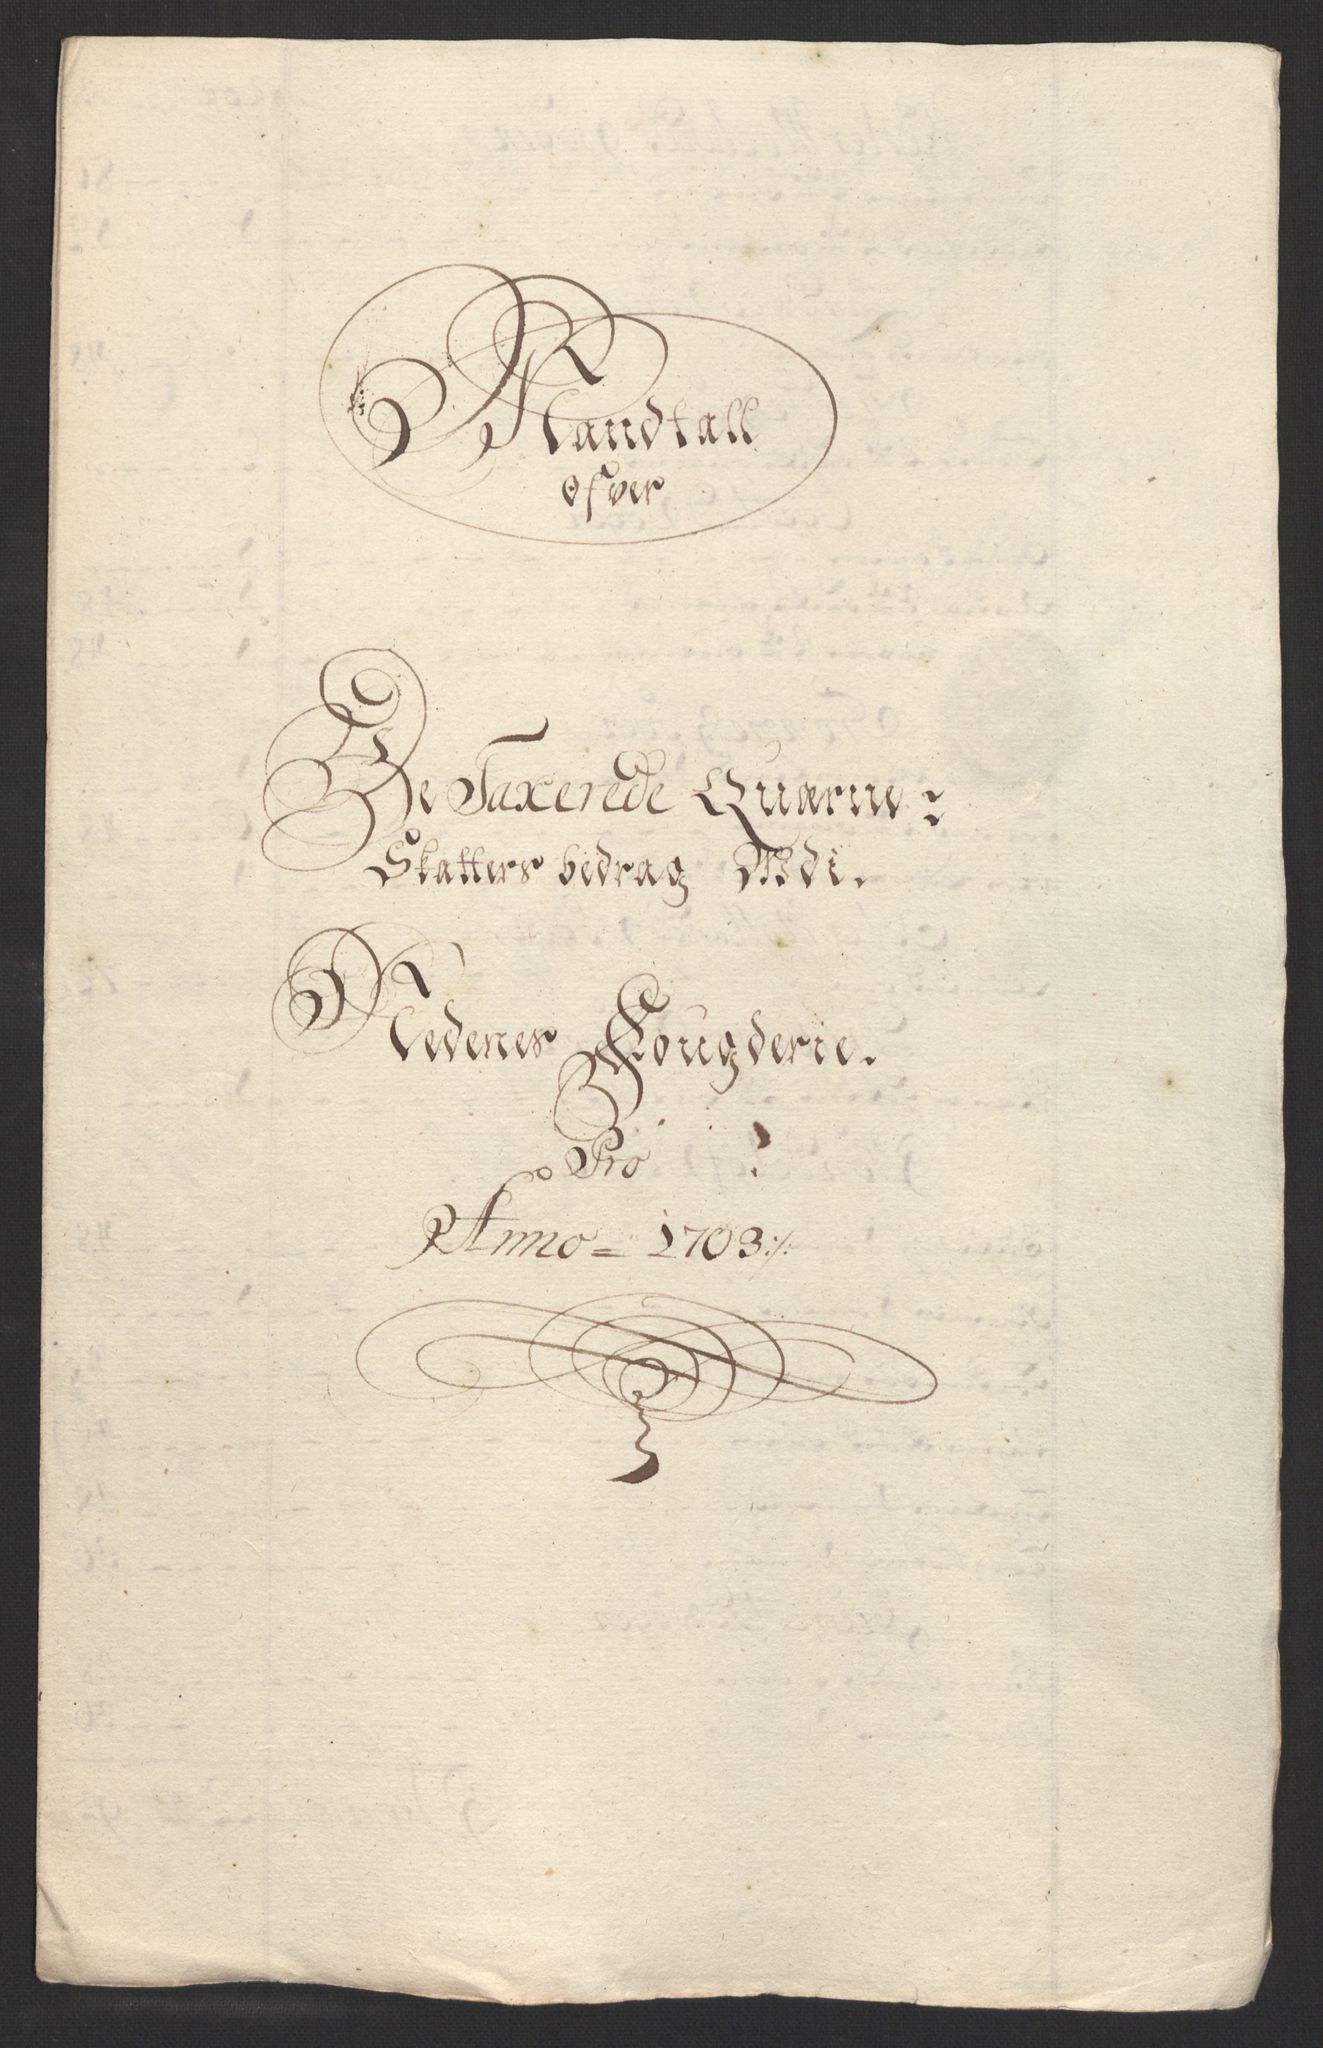 Mandtall
ofver
De Taxerede Quærne:
Skatters bedrag Udi.
Nedenes Fougderie.
Pro
Anno = 1703 ·/.